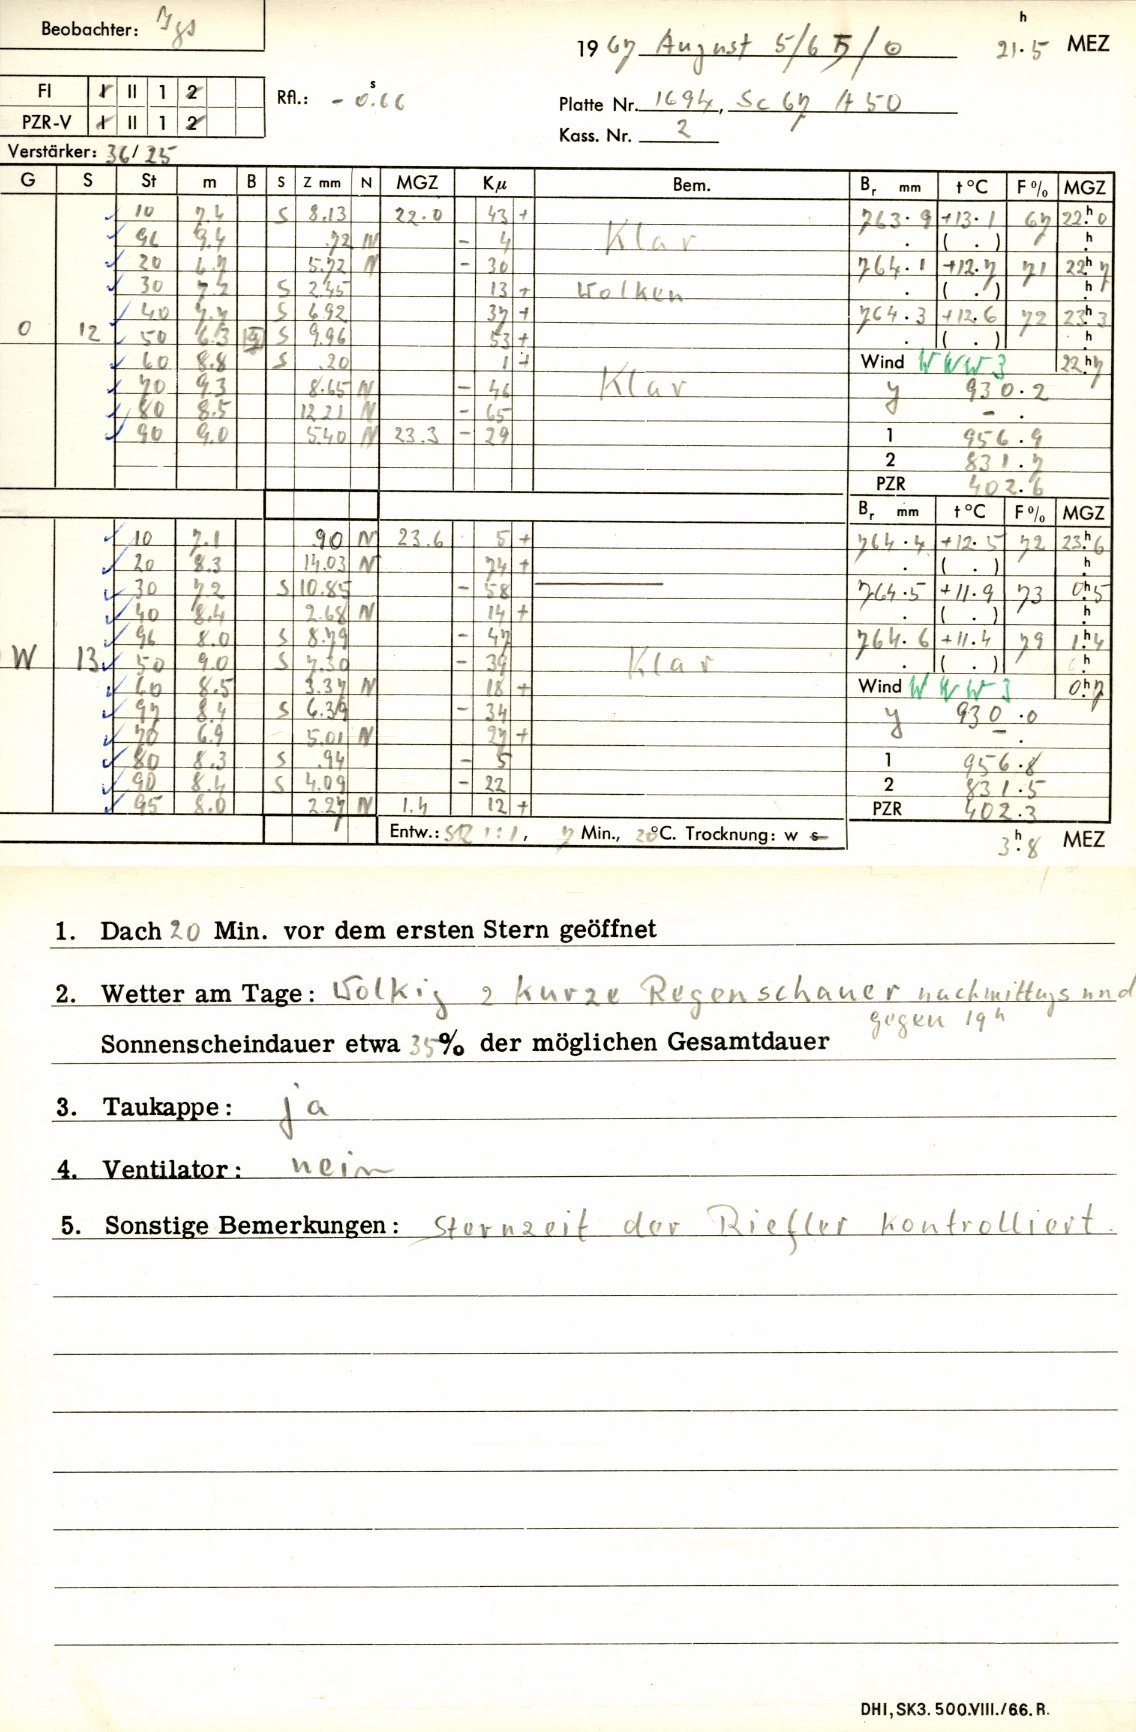 Beobachter: Jgs
1967 August 5/6 5/6 21.5 h MEZ
FI I II 1 2
PZR-V I II 1 2
Rfl.: - 0.66 s
Platte Nr. 1694, Sc 67 A 50
Kass. Nr. 2
Verstärker: 36/25
G S St m B S Z mm N MGZ Kμ Bem. Br mm t °C F % MGZ
10 7.4 S 8.13 22.0 43 + 763.9 +13.1 67 22.h0
96 9.4 .72 N - 4 Klar . ( . ) h
20 6.7 5.72 N - 30 764.1 +12.7 71 22h7
30 7.2 S 2.45 13 + Wolken . ( . ) h
40 7.7 S 6.92 37 + 764.3 +12.6 72 23h3
O 12 50 6.3 S 9.96 53 + . ( . ) h
60 8.8 S .20 1 + Wind W W W 3 22.h7
70 9.3 8.65 N - 46 Klar y 930.2
80 8.5 12.21 N - 65 - .
90 9.0 5.40 N 23.3 - 29 1 956.9
2 831.7
PZR 402.6
Br mm t °C F % MGZ
10 7.1 .90 N 23.6 5 + 764.4 +12.5 72 23.h6
20 8.3 14.03 N 74 + . ( . ) h
30 7.2 S 10.85 - 58 764.5 +11.9 73 0.h5
40 8.4 2.68 N 14 + . ( . ) h
96 8.0 S 8.79 - 47 764.6 +11.4 79 1.h4
W 13 50 9.0 S 7.30 - 39 Klar . ( . ) h
60 8.5 3.37 N 18 + Wind W W W 3 0.h7
97 8.4 S 6.39 - 34 y 930.0
70 6.9 5.01 N 27 + - .
80 8.3 S .94 - 5 1 956.8
90 8.4 S 4.09 - 22 2 831.5
95 8.0 2.27 N 1.4 12 + PZR 402.3
Entw.: SR 1:1, 7 Min., 20°C. Trocknung: w s 3.h8 MEZ
1. Dach 20 Min. vor dem ersten Stern geöffnet
2. Wetter am Tage: Wolkig 2 kurze Regenschauer nachmittags und
gegen 19h
Sonnenscheindauer etwa 35% der möglichen Gesamtdauer
3. Taukappe: ja
4. Ventilator: nein
5. Sonstige Bemerkungen: Sternzeit der Riefler kontrolliert.
DHI, SK3. 500.VIII./66. R.